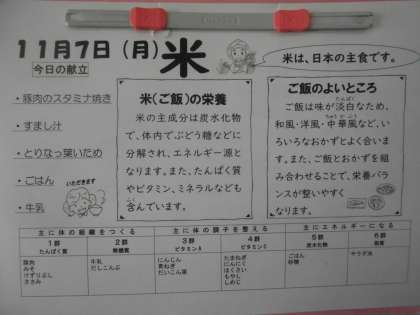 11月7日(月) 米
米は、日本の主食です。
今日の献立
・豚肉のスタミナ焼き
・すまし汁
・とりなっ葉いため
・ごはん
・牛乳
いただきます
米(ご飯)の栄養
米の主成分は炭水化物
で、体内でぶどう糖などに
分解され、エネルギー源と
なります。また、たんぱく質
やビタミン、ミネラルなども
含んでいます。
ご飯のよいところ
ご飯は味が淡白なため、
和風・洋風・中華風など、い
ろいろなおかずとよく合いま
す。また、ご飯とおかずを組
み合わせることで、栄養バラ
ンスが整いやすく
なります。
主に体の組織をつくる 主に体の調子を整える 主にエネルギーになる
1群 2群 3群 4群 5群 6群
たんぱく質 無機質 ビタミンA ビタミンC 炭水化物 脂質
豚肉 牛乳 にんじん たまねぎ ごはん サラダ油
みそ だしこんぶ 青ねぎ にんにく 砂糖
けずりぶし だいこん葉 はくさい
ささみ もやし
しめじ